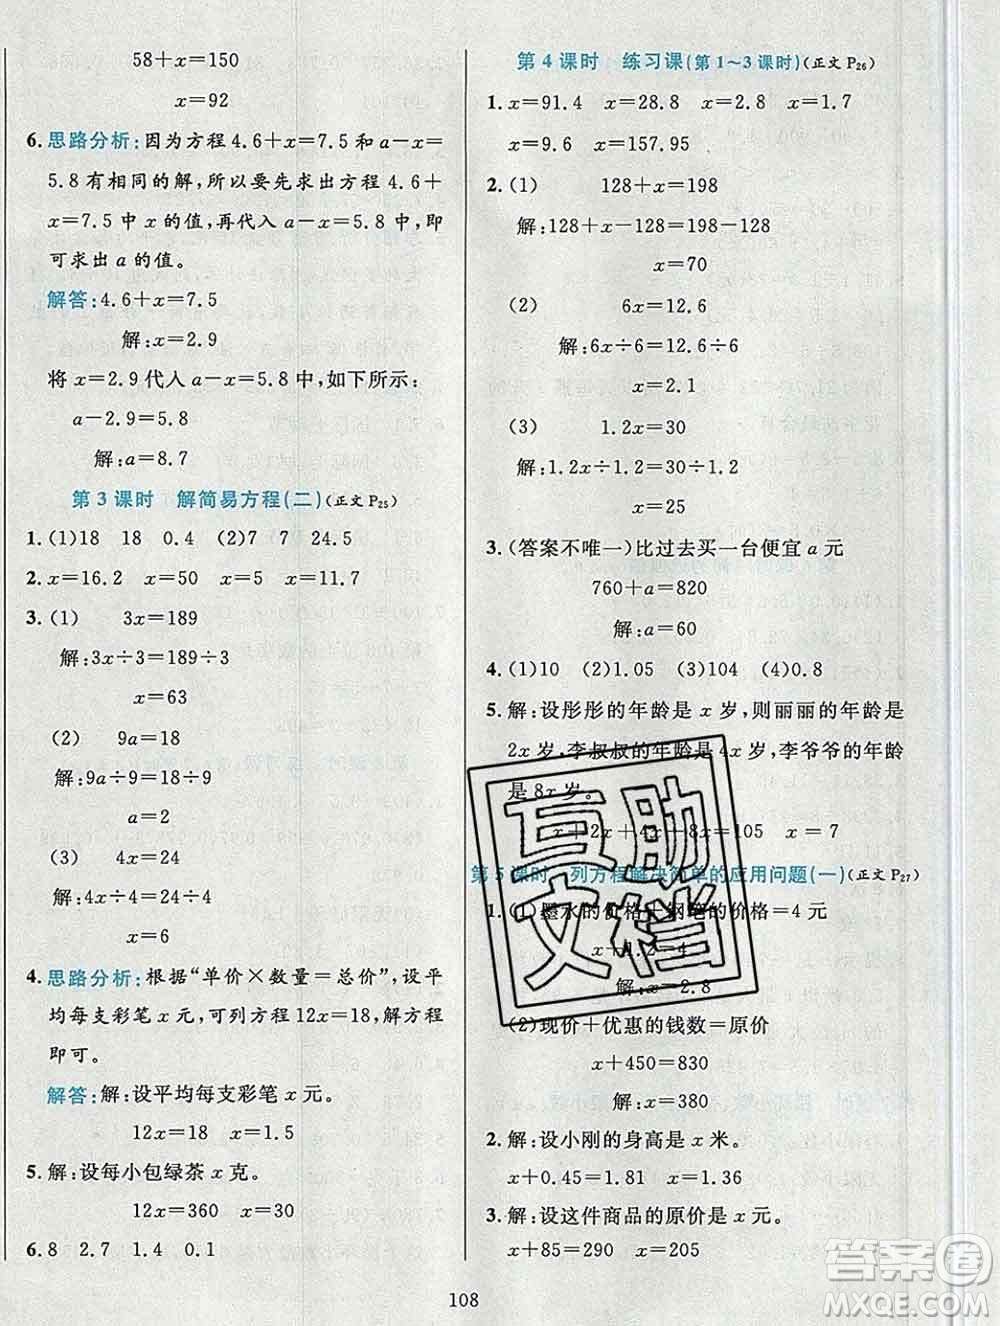 58＋x＝150
x＝92
6.思路分析:因为方程4.6＋x＝7.5和a－x＝
5.8有相同的解,所以要先求出方程4.6＋
x＝7.5中x的值,再代入a－x＝5.8中,即
可求出a的值。
解答:4.6＋x＝7.5
解:x＝2.9
将x＝2.9代人a－x＝5.8中,如下所示:
a－2.9＝5.8
解:a＝8.7
第3课时 解简易方程(二)(正文P25)
1.(1)18 18 0.4 (2)7 7 24.5
2.x＝16.2 x＝50 x＝11.7
3.(1) 3x＝189
解:3x÷3＝189÷3
x＝63
(2) 9a＝18
解:9a÷9＝18÷9
a＝2
(3) 4x＝24
解:4x÷4＝24÷4
x＝6
4.思路分析:根据“单价×数量＝总价”,设平
均每支彩笔x元,可列方程12x＝18,解方程
即可。
解答:解:设平均每支彩笔x元。
12x＝18 x＝1.5
5.解:设每小包绿茶x克。
12x＝360 x＝30
6.8 2.7 1.4 0.1
第4课时 练习课(第1～3课时)(正文P26)
1.x＝91.4 x＝28.8 x＝0.8 x＝1.7
x＝9.6 x＝157.95
2.(1) 128＋x＝198
解:128＋x－128＝198－128
x＝70
(2) 6x＝12.6
解:6x÷6＝12.6÷6
x＝2.1
(3) 1.2x＝30
解:1.2x÷1.2＝30÷1.2
x＝25
3.(答案不唯一)比过去买一台便宜a元
760＋a＝820
解:a＝60
4.(1)10 (2)1.05 (3)104 (4)0.8
5.解:设彤彤的年龄是x岁,则丽丽的年龄是
2x岁,李叔叔的年龄是4x岁,李爷爷的年龄
是8x岁。
x＋2x＋4x＋8x＝105 x＝7
第5课时 列方程解决简单的应用问题(一)(正文P27)
1.(1)墨水的价格＋钢笔的价格＝4元
x＋1.2＝4
解:x＝2.8
(2)现价＋优惠的钱数＝原价
x＋450＝830
解:x＝380
2.解:设小刚的身高是x米。
x＋0.45＝1.81 x＝1.36
3.解:设这件商品的原价是x元。
x＋85＝290 x＝205
108
互助
文档
答案圈
MXQE.COM